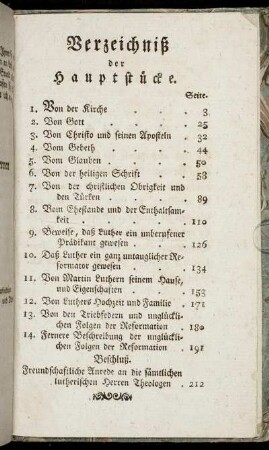 Verzeichniß
der
Hauptstücke.
Seite.
1. Von der Kirche . . . 3
2. Von Gott . . . 25
3. Von Christo und seinen Aposteln . 32
4. Vom Gebeth . . . 44
5. Vom Glauben . . . 50
6. Von der heiligen Schrift . . 58
7. Von der christlichen Obrigkeit und
den Türken . . . 89
8. Vom Ehestande und der Enthaltsam-
keit . . . . 110
9. Beweise, daß Luther ein unberufener
Prädikant gewesen . . 126
10. Daß Luther ein ganz untauglicher Re-
formator gewesen . . . 134
11. Von Martin Luthern seinem Hause,
und Eigenschaften . . 153
12. Von Luthers Hochzeit und Familie . 171
13. Von den Triebfedern und unglückli-
chen Folgen der Reformation . 180
14. Fernere Beschreibung der unglückli-
chen Folgen der Reformation . 191
Beschluß.
Freundschaftliche Anrede an die sämtlichen
lutherischen Herren Theologen . 212